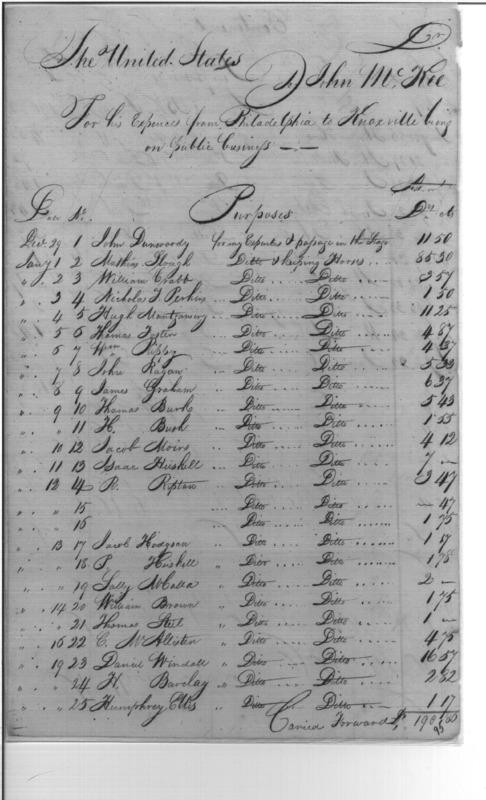 Dr.
The United States
To John McKee
For his Expences from Philadelphia to Knoxville being
on public business —
Date No. Purposes Drs Cts
Decr. 29 1 John Dunwoody for my Expenses & passage in the Stage 11 50
Jany 1 2 Mathias Slough Ditto & keeping Horses 85 30
" 2 3 William Crabb Ditto Ditto 8 57
" 3 4 Nicholas T Perkins Ditto Ditto 1 50
" 4 5 Hugh Montgomery Ditto Ditto 11 25
" 5 6 Thomas Ditto Ditto 4 87
" 6 7 Wm. Ditto Ditto 4 37
" 7 8 John Ragan Ditto Ditto 5 33
" 8 9 James Graham Ditto Ditto 6 37
" 9 10 Thomas Burk Ditto Ditto 5 43
" " 11 H. Bush Ditto Ditto 1 55
" 10 12 Jacob Moirs Ditto Ditto 4 12
" 11 13 Isaac Huskill Ditto Ditto 7 —
" 12 14 R. Ditto Ditto 3 47
" " 15 Ditto Ditto — 47
" " 16 Ditto Ditto 1 75
" 13 17 Jacob Hodgson " Ditto Ditto 1 17
" " 18 P. Huskill " Ditto Ditto 1 78
" " 19 Sally McCalla " Ditto Ditto 2 —
" 14 20 William Brown " Ditto Ditto 1 75
" " 21 Thomas Steel " Ditto Ditto 1 —
" 16 22 C. McAllister " Ditto Ditto 4 75
" 19 23 Daniel Windall " Ditto Ditto 16 57
" " 24 H. Barclay " Ditto Ditto 2 82
" " 25 Humphrey Ellis " Ditto Ditto 1 17
Carried Forward